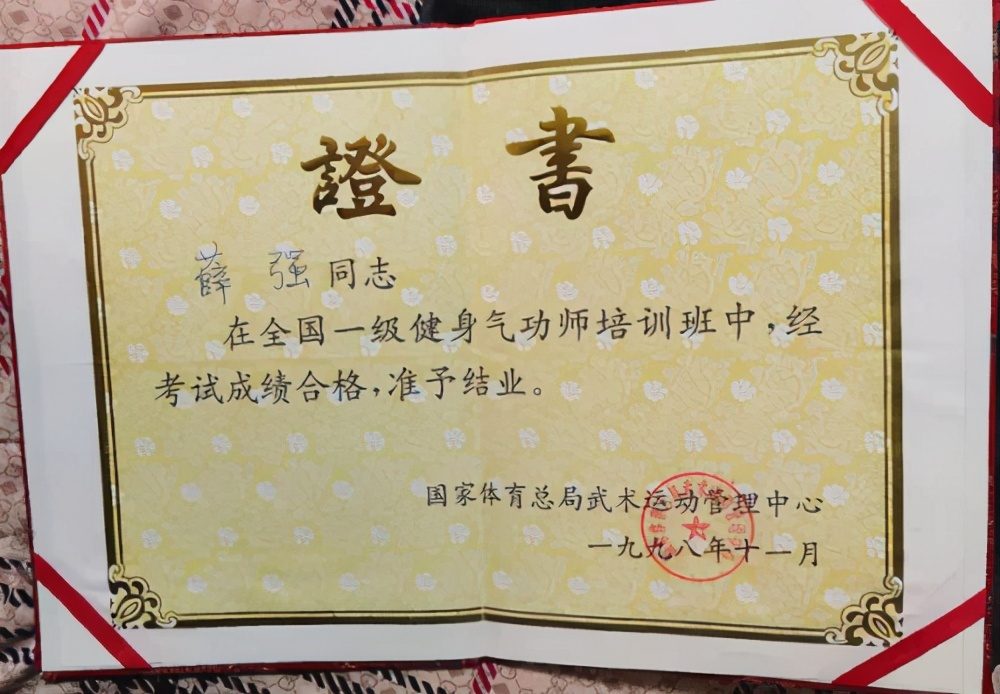 證書
薛强同志
在全国一级健身气功师培训班中,经
考试成绩合格,准予结业。
国家体育总局武术运动管理中心
一九九八年十一月